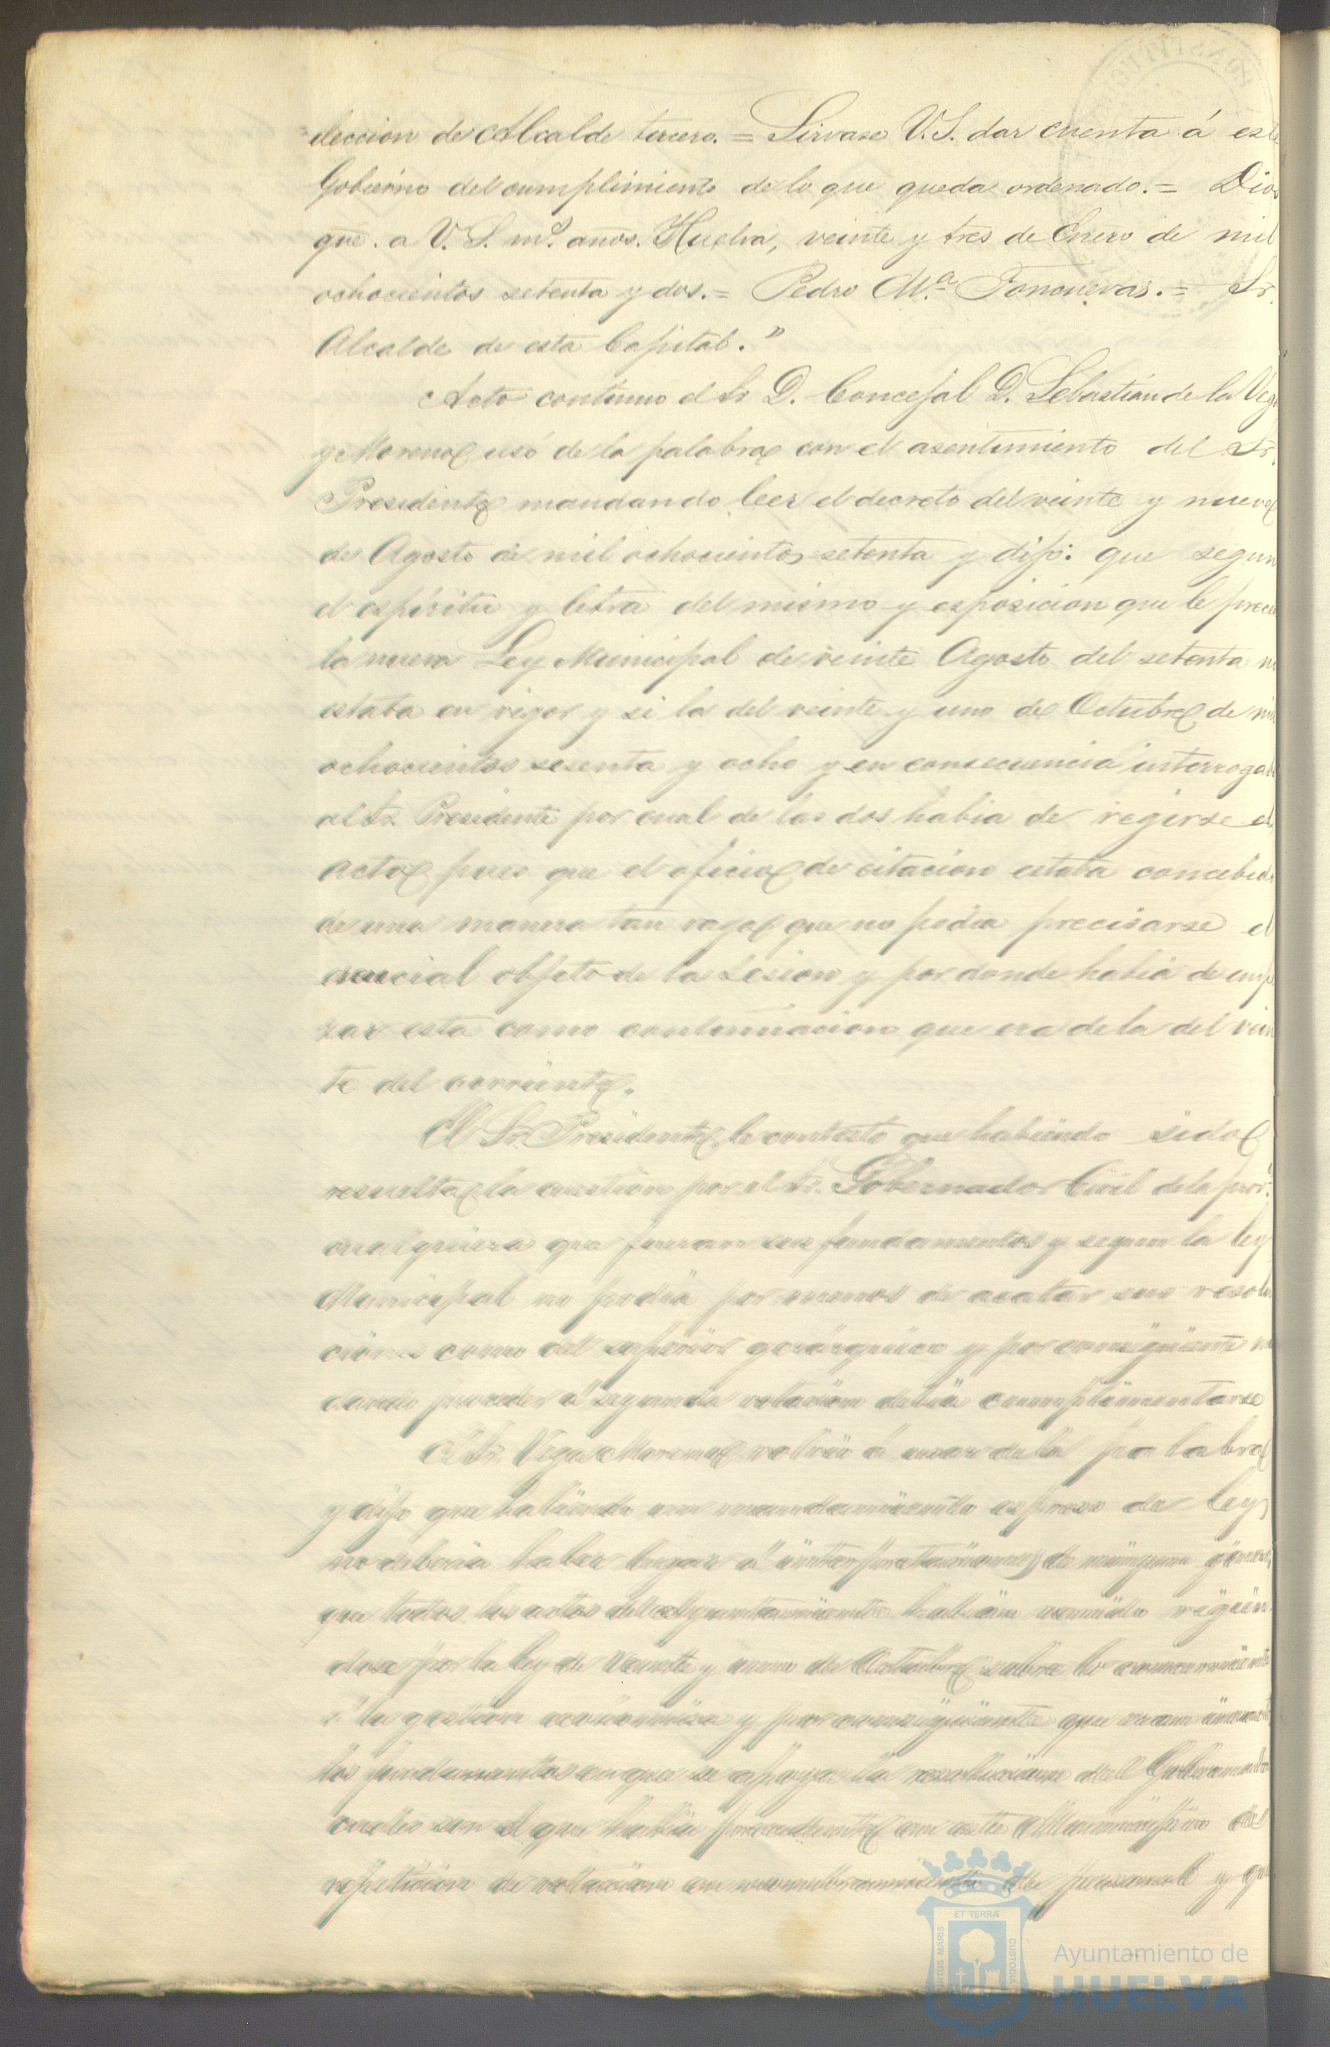 eleccion de Alcalde tercero. = Sirvase V.S. dar cuenta á este
Gobierno del cumplimiento de lo que queda ordenado. = Dios
gue. a V. S. ms. años. Huelva, veinte y tres de Enero de mil
ochocientos setenta y dos. = Pedro Ma. = Sr.
Alcalde de esta Capital."
Acto continuo el Sr. D. Concejal D. Sebastian de la Vega
y Moreno usó de la palabra con el asentimiento del Sr.
Presidente mandando leer el decreto del veinte y nueve
de Agosto de mil ochocientos setenta y dijo: que segun
el espíritu y letra del mismo y esposicion que le prece
la nueva Ley Municipal de veinte Agosto del setenta no
estaba en vigor y si la del veinte y uno de Octubre de mil
ochocientos sesenta y ocho y en consecuencia interrogaba
al Sr. Presidente por cual de las dos habia de regirse el
acto, pues que el oficio de citacion estaba concebido
de una manera tan vaga que no podia precisarse el
esencial objeto de la sesion y por donde habia de empe
zar esta como continuacion que era de la del vein
te del corriente.
El Sr. Presidente le contestó que habiendo sido
resuelta la cuestion por el Sr. Gobernador Civil de la prov.
cualquiera que fueran sus fundamentos y segun la ley
Municipal no podia por menos de acatar sus resolu
ciones como del superior gerárquico y por consiguiente
proceder á segunda votacion debia cumplimentarse
El Sr. Vega Moreno volvió á usar de la palabra
y dijo que habiendo un mandamiento espreso de ley
no deberia haber lugar á interpretaciones de ningun género
que todos los actos del Ayuntamiento habian venido regien
dose por la ley de veinte y uno de Octubre salvo lo concerniente
á la gestion económica y por consiguiente que eran
los fundamentos en que se apoya la resolucion del Gobernador
cuales son el que habia precedente en este Municipio de
repeticion de votacion en nombramiento de personal y que
ET TERRÆ
PORTUS MARIS
CUSTODIA
Ayuntamiento de
HUELVA